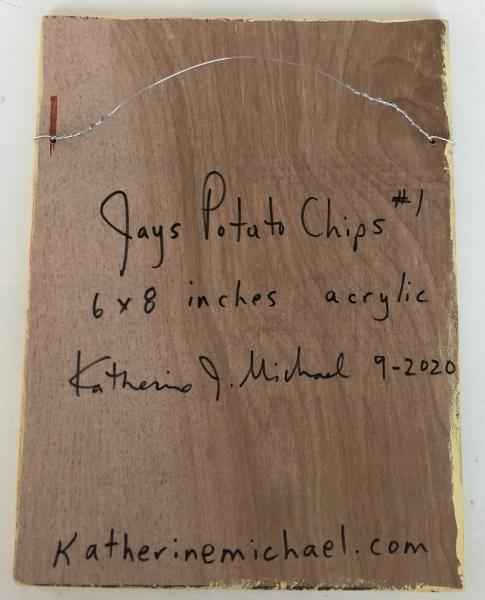 Jays Potato Chips #1
6 x 8 inches acrylic
Katherine J. Michael 9-2020
Katherinemichael.com